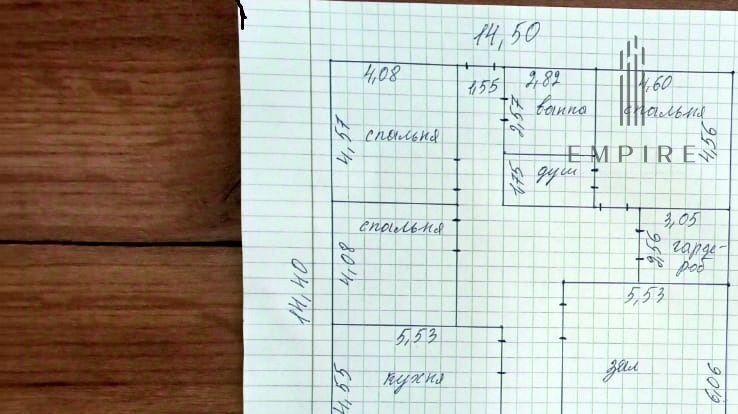 14,50
4,08
1,55
2,82
4,60
4,57
спальня
2,57
ванна
спальня
4,56
EMPIRE
1,75
душ
спальня
4,08
3,05
2,56
гарде-
роб
14,40
5,53
5,53
кухня
4,55
зал
6,06